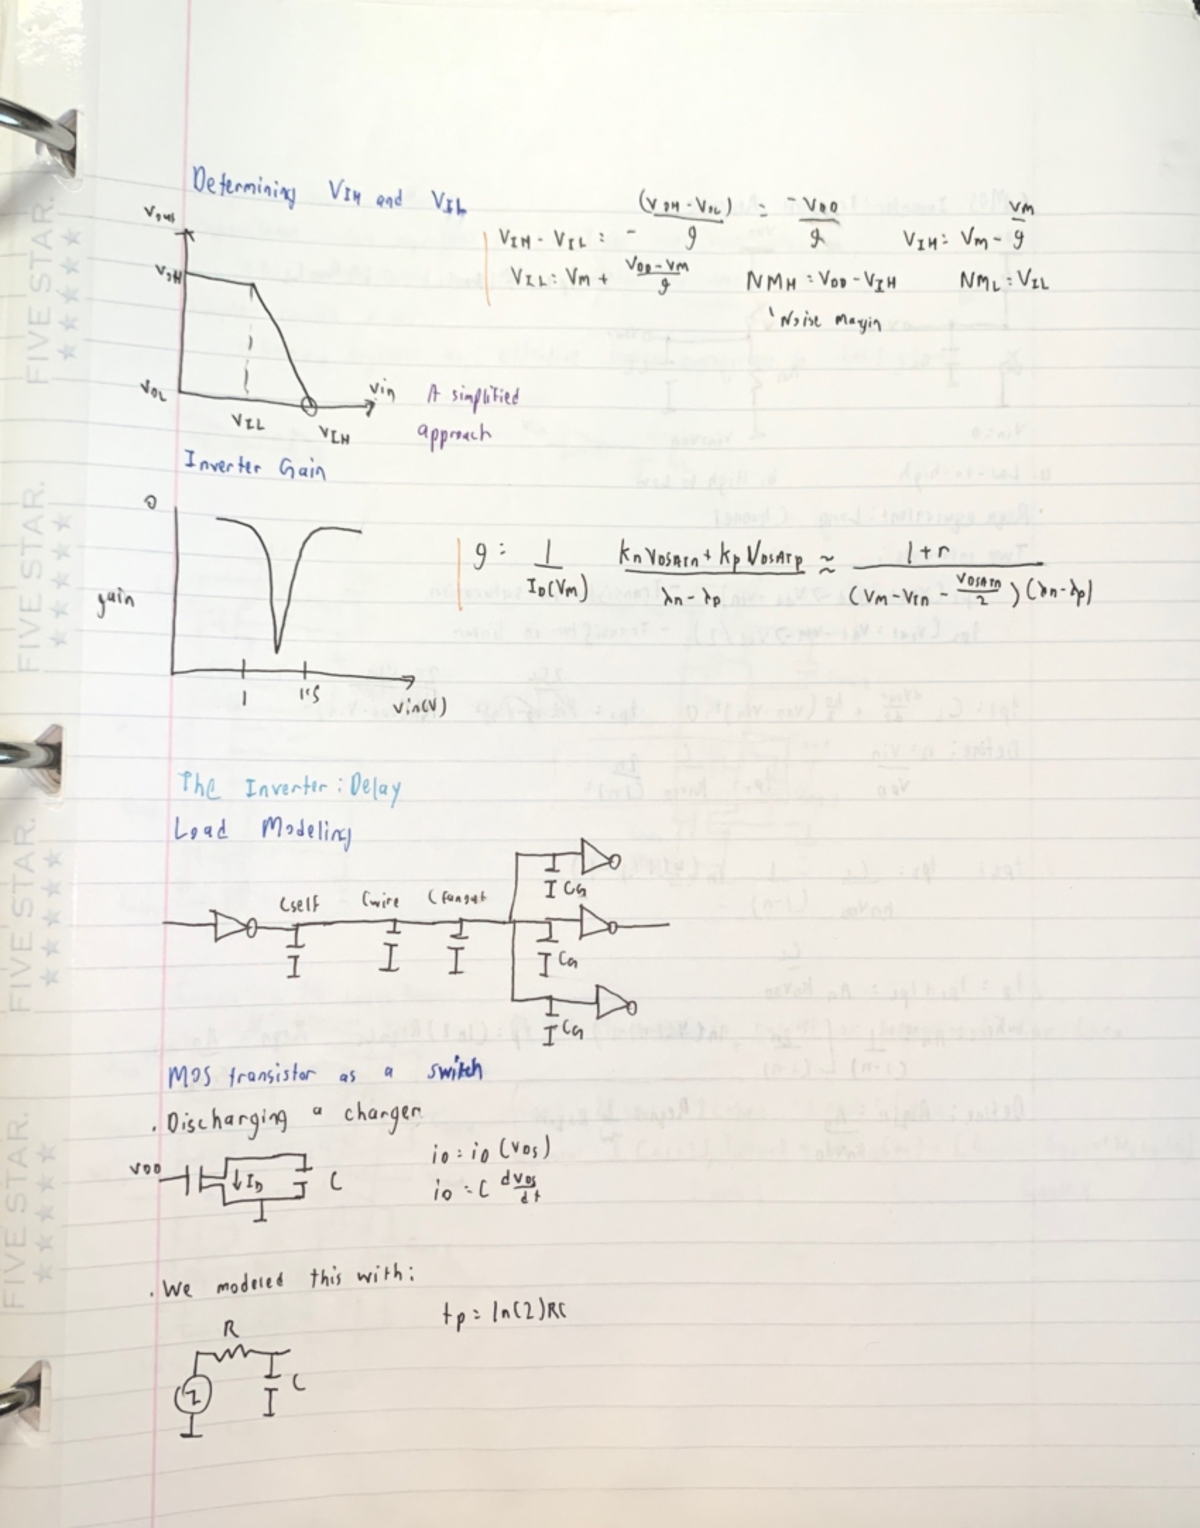 Determining VIH and VIL
Vout
VOH
VOL
VIL
VIH
Vin
A simplified
approach
VIH - VIL = - (VOH - VOL) / g = -VDD / g
VIH = VM - VM / g
VIL = VM + VDD - VM / g
NMH = VDD - VIH
NML = VIL
Noise margin
Inverter Gain
0
gain
1
1.5
Vin(V)
g = 1 / ID(VM) kn VDSATn + kp VDSATp / λn - λp ≈ 1 + r / (VM - VTn - VDSATn / 2)(λn - λp)
The Inverter: Delay
Load Modeling
Cself Cwire Cfanout
CG
CG
CG
MOS transistor as a switch
. Discharging a charger
VDD
ID
C
iD = iD (VDS)
iD = C dVDS / dt
. We modeled this with:
tp = ln(2)RC
R
C
FIVE STAR.
FIVE STAR.
FIVE STAR.
FIVE STAR.